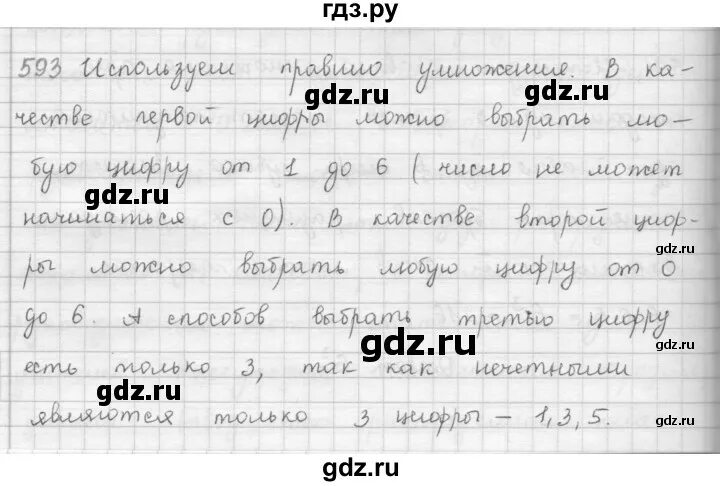 гдз.ру
593 Используем правило умножения. В ка-
gdz.ru
gdz.ru
честве первой цифры можно выбрать лю-
бую цифру от 1 до 6 (число не может
gdz.ru
начинаться с 0). В качестве второй циф-
gdz.ru
ры можно выбрать любую цифру от 0
до 6. А способов выбрать третью цифру
gdz.ru
gdz.ru
есть только 3, так как нечетными
gdz.ru
являются только 3 цифры – 1, 3, 5.
gdz.ru
gdz.ru